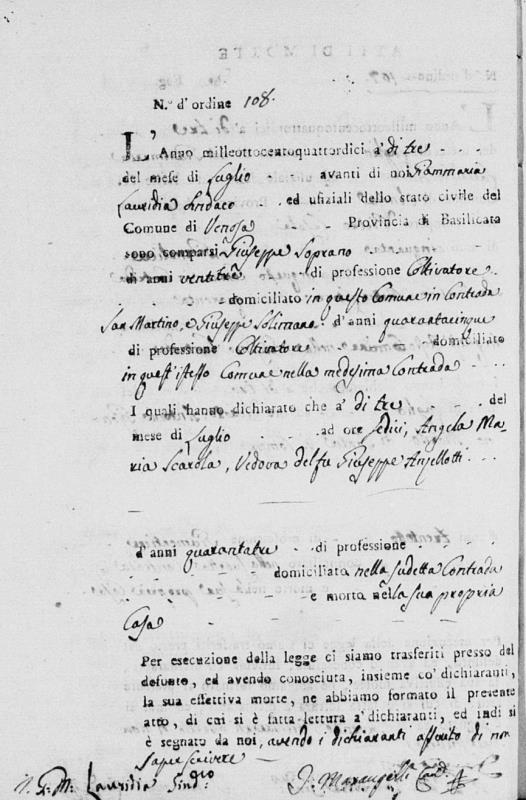 N.º d'ordine 108.
L'Anno milleottocentoquattordici a' dì tre
del mese di Luglio avanti di noi Gianmaria
Lauridia Sindaco ed ufiziali dello stato civile del
Comune di Venosa Provincia di Basilicata
sono comparsi Giuseppe Soprano
di anni ventitrè di professione Coltivatore
domiciliato in questo Comune in Contrada
San Martino, e Giuseppe Solimano d'anni quarantacinque
di professione Coltivatore domiciliato
in quest'istesso Comune nella medesima Contrada
I quali hanno dichiarato che a' dì tre del
mese di Luglio ad ore sedici, Angela Ma-
ria Scarola, Vedova del fu Giuseppe Anjellotti
d'anni quarantatre di professione
domiciliato nella sudetta Contrada
e morto nella sua propria
Casa
Per esecuzione della legge ci siamo trasferiti presso del
defunto, ed avendo conosciuta, insieme co' dichiaranti,
la sua effettiva morte, ne abbiamo formato il presente
atto, di cui si è fatta lettura a' dichiaranti, ed indi si
è segnato da noi, avendo i dichiaranti asserito di non
saper scrivere
G. M. Lauridia Sind.co